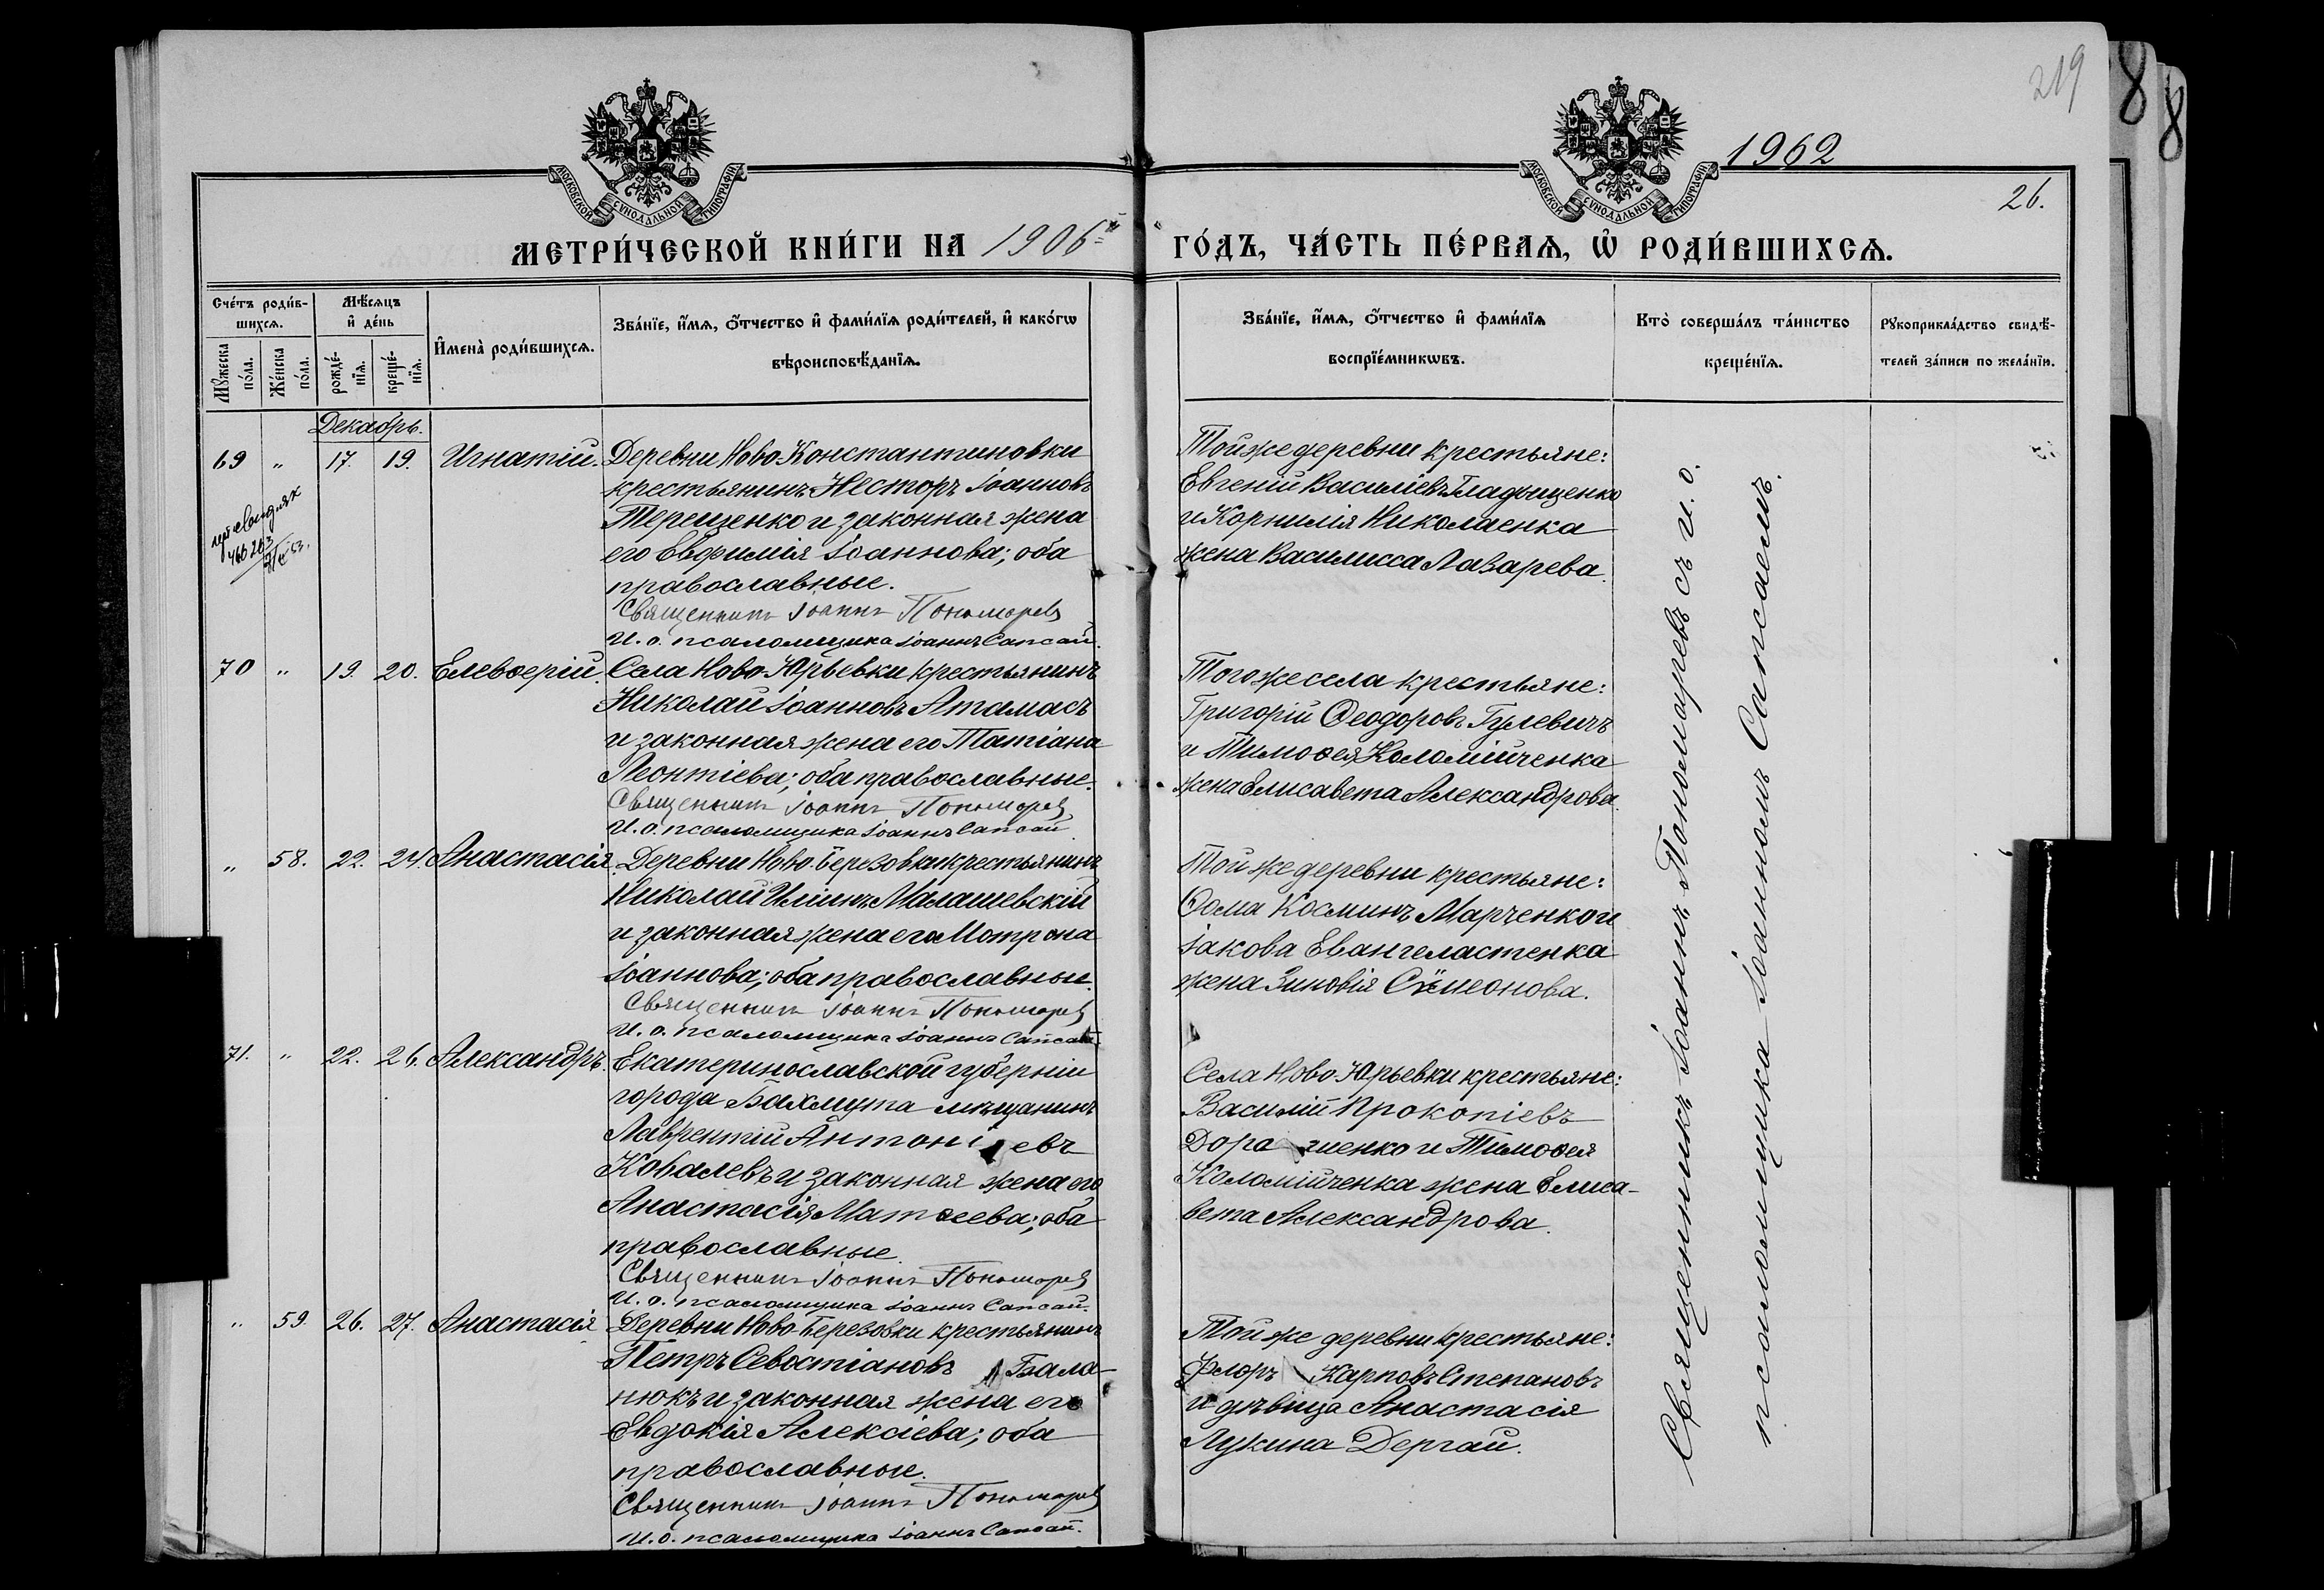 219
8
8
1962
26.
МОСКОВСКОЙ СУНОДАЛЬНОЙ ТИПОГРАФІИ
МОСКОВСКОЙ СУНОДАЛЬНОЙ ТИПОГРАФІИ
МЕТРИ́ЧЕСКОЙ КНИ́ГИ НА 1906й ГО́ДЪ, ЧА́СТЬ ПЕ́РВАѦ, Ѡ҆ РОДИ́ВШИХСѦ.
Сче́тъ роди́в-
шихсѧ.
Мꙋ́жеска по́ла.
Же́нска по́ла.
Мѣ́сѧцъ
и҆ де́нь
рожде́-
нїѧ.
креще́-
нїѧ.
И҆мена̀ роди́вшихсѧ.
Зва́нїе, и҆́мѧ, ѻ҆́тчество и҆ фами́лїѧ роди́телей, и҆ како́гѡ
вѣроисповѣ́данїѧ.
Зва́нїе, и҆́мѧ, ѻ҆́тчество и҆ фами́лїѧ
воспрїе́мникѡвъ.
Кто̀ соверша́лъ та́инство
креще́нїѧ.
Рꙋкоприкла́дство свидѣ́-
телей за́писи по жела́нїю.
Декабрь.
69 " 17. 19. Игнатій.
Деревни Ново-Константиновки
крестьянинъ Несторъ Іоанновъ
Терещенко и законная жена
его Евфимія Іоаннова; оба
православные.
Священникъ Іоаннъ Пономаревъ
И. о. псаломщика Іоаннъ Сапсай.
Той же деревни крестьяне:
Евгеній Василіевъ Гладыщенко
и Корнилія Николаенка
жена Василисса Лазарева.
70 " 19. 20. Елевѳерій.
Села Ново-Юрьевки крестьянинъ
Николай Іоанновъ Атамасъ
и законная жена его Татіана
Леонтіева; оба православные.
Священникъ Іоаннъ Пономаревъ
И. о. псаломщика Іоаннъ Сапсай.
Того же села крестьяне:
Григорій Ѳеодоровъ Гулевичъ
и Тимоѳея Коломійченка
жена Елисавета Александрова.
" 58. 22. 24. Анастасія.
Деревни Ново-Березовки крестьянинъ
Николай Иліинъ Малашевскій
и законная жена его Мотрона
Іоаннова; оба православные.
Священникъ Іоаннъ Пономаревъ
И. о. псаломщика Іоаннъ Сапсай.
Той же деревни крестьяне:
Ѳома Косминъ Марченко и
Іакова Евангеластенка
жена Зиновія Сѵмеонова.
71. " 22. 26. Александръ.
Екатеринославской губерніи
города Бахмута мѣщанинъ
Лаврентій Антоніевъ
Ковалевъ и законная жена его
Анастасія Матѳеева; оба
православные.
Священникъ Іоаннъ Пономаревъ
И. о. псаломщика Іоаннъ Сапсай.
Села Ново-Юрьевки крестьяне:
Василій Прокопіевъ
и Тимоѳея
Коломійченка жена Елиса-
вета Александрова.
" 59. 26. 27. Анастасія
Деревни Ново-Березовки крестьянинъ
Петръ Севостіановъ Бала-
нюкъ и законная жена его
Евдокія Алексіева; оба
православные.
Священникъ Іоаннъ Пономаревъ
И. о. псаломщика Іоаннъ Сапсай.
Той же деревни крестьяне:
Флоръ Карповъ Степановъ
и дѣвица Анастасія
Лукина Дергай.
Священникъ Іоаннъ Пономаревъ съ и. о.
псаломщика Іоанномъ Сапсаемъ.